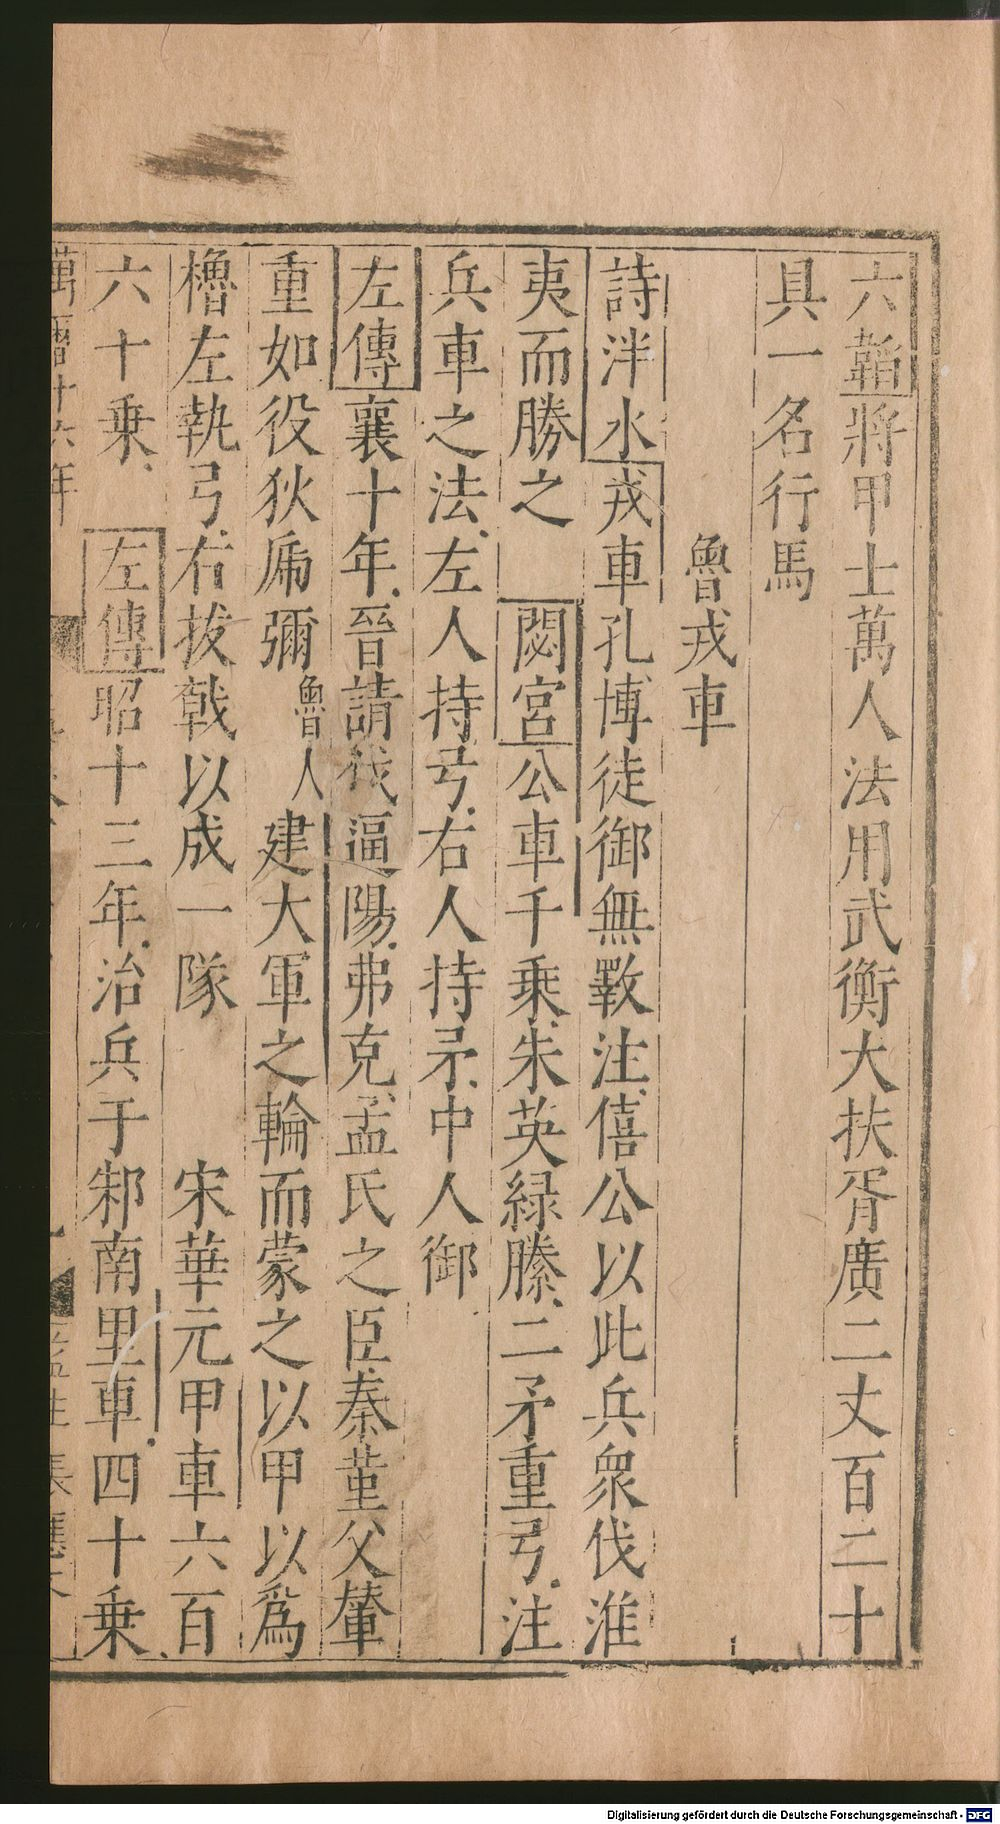 六韜將甲士萬人法用武衡大扶胥廣二丈百二十
具一名行馬
魯戎車
詩泮水戎車孔博徒御無斁注僖公以此兵衆伐淮
夷而勝之 閟宮公車千乗朱英緑縢二矛重弓注
兵車之法左人持弓右人持矛中人御
左傳襄十年晉請伐逼陽弗克孟氏之臣秦菫父輦
重如役狄虒彌魯人建大軍之輪而蒙之以甲以爲
櫓左執弓右拔戟以成一隊 宋華元甲車六百
六十乗 左傳昭十三年治兵于邾南里車四十乗
萬曆十六年
Digitalisierung gefördert durch die Deutsche Forschungsgemeinschaft - DFG